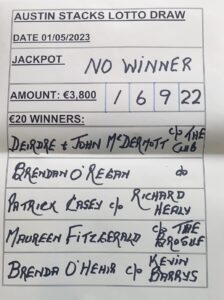 AUSTIN STACKS LOTTO DRAW
DATE 01/05/2023
JACKPOT NO WINNER
AMOUNT: €3,800 1 6 9 22
€20 WINNERS:
DEIRDRE + JOHN MCDERMOTT c/o THE CLUB
BRENDAN O'REGAN do
PATRICK CASEY c/o RICHARD HEALY
MAUREEN FITZGERALD c/o THE BROGUE
BRENDA O'HEHIR c/o KEVIN BARRYS